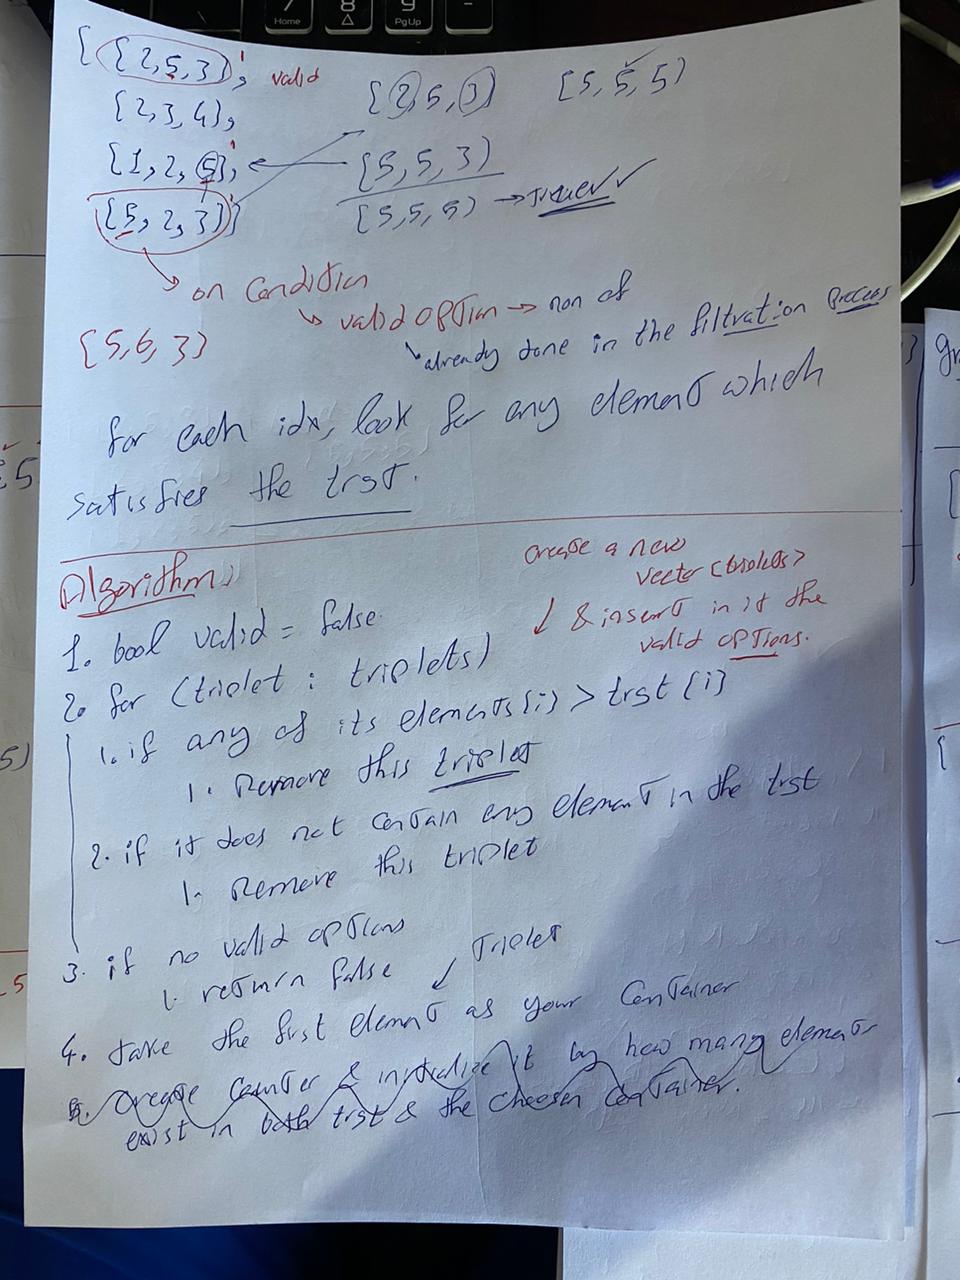 { {2,5,3}, valid
{2,3,4},
{1,2,5},
{5,2,3}}
{2,5,3}
{5,5,3}
{5,5,5} → true ✓✓
[5,5,5}
on condition
↳ valid option → non of
↳ already done in the filtration process
{5,6,3}
for each idx, look for any element which
satisfies the trgt.
Algorithm
create a new
vector (triplets>
↓ & insert in it the
valid options.
1. bool valid = false.
2. for (triplet : triplets)
1. if any of its elements[i] > trgt [i]
1. Remove this triplet
2. if it does not contain any element in the trgt
1. Remove this triplet
3. if no valid options
1. return false
↓ Triplet
4. take the first element as your container
5. create counter & initialize it by how many element
exist in both trgt & the choosen container.
Home
8
9
PgUp
5)